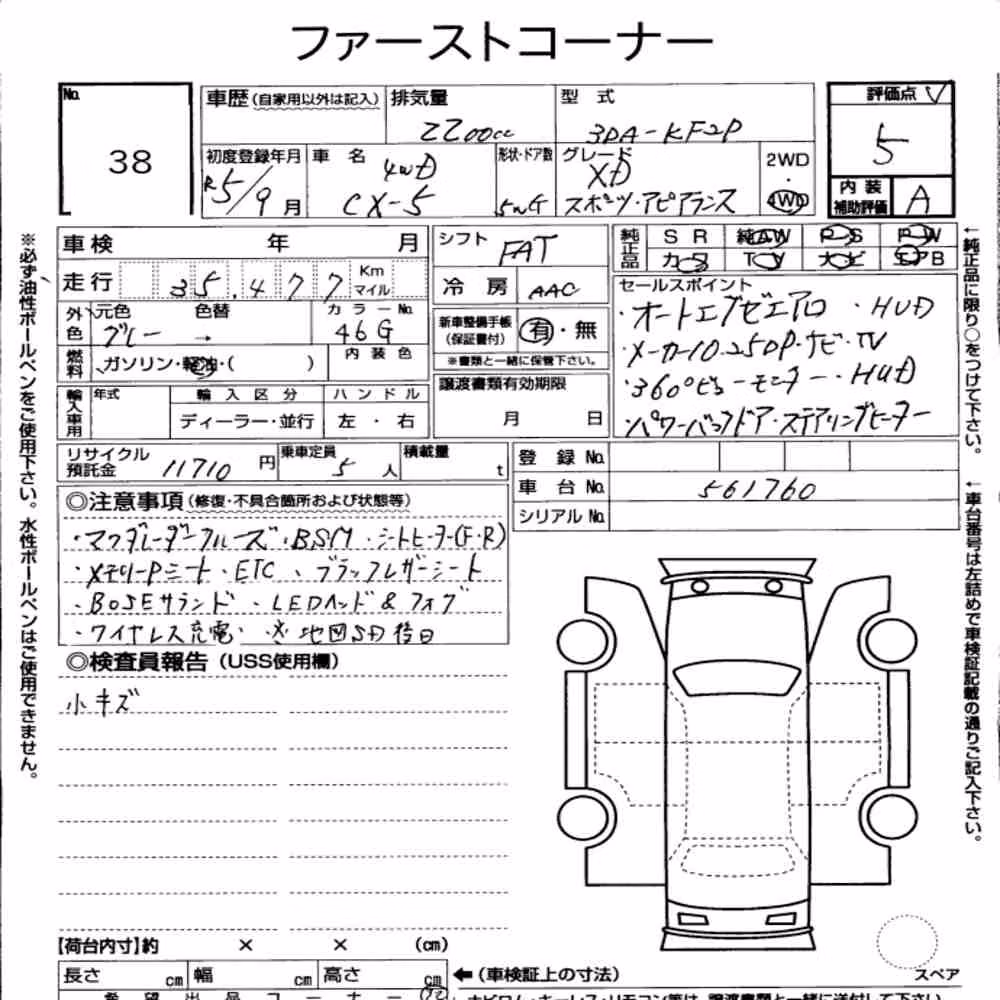 ファーストコーナー
No.
38
車歴(自家用以外は記入)
排気量
2200cc
型式
3DA-KF2P
評価点
5
初度登録年月
R5/9月
車名
4WD
CX-5
形状・ドア数
5WG
グレード
XD
スポーツ・アピアランス
2WD
・
4WD
内装
補助評価
A
車検 年 月
シフト
FAT
純正品
SR 純AW PS PW
カワ TV ナビ エアB
走行 35,477 Km マイル
冷房 AAC
セールスポイント
・オートエグゼエアロ ・HUD
・メーカー10.25DPナビ・TV
・360°ビューモニター・HUD
・パワーバックドア・ステアリングヒーター
外色
元色 色替
グレー →
カラーNo.
46G
新車整備手帳
(保証書付)
有・無
※書類と一緒に保管下さい。
燃料
ガソリン・軽油・( )
内装色
譲渡書類有効期限
月 日
輸入車用
年式
輸入区分
ディーラー・並行
ハンドル
左・右
リサイクル
預託金
11710円
乗車定員
5人
積載量
t
登録No.
車台No. 561760
シリアルNo.
◎注意事項(修復・不具合箇所および状態等)
・マツダレーダークルーズ・BSM・シートヒーター(F・R)
・メモリーPシート・ETC、ブラックレザーシート
・BOSEサウンド・LEDヘッド&フォグ
・ワイヤレス充電・※地図SD後日
◎検査員報告(USS使用欄)
小キズ
【荷台内寸】約 × × (cm)
長さ cm 幅 cm 高さ cm
←(車検証上の寸法)
スペア
希望出品コーナー
※必ず油性ボールペンをご使用下さい。水性ボールペンはご使用できません。
←純正品に限り○をつけて下さい。
←車台番号は左詰めで車検証記載の通りご記入下さい。